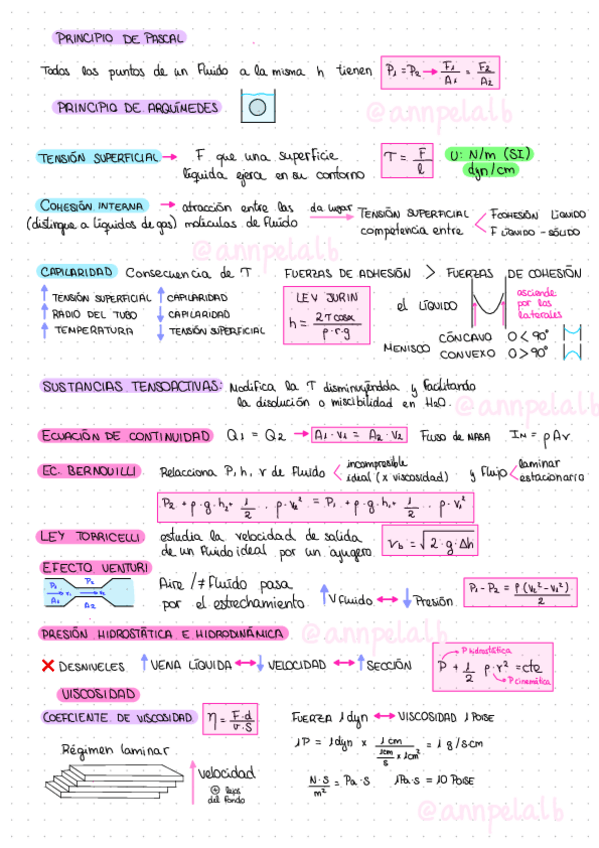 PRINCIPIO DE PASCAL
Todos los puntos de un fluido a la misma h tienen P₁=P₂ → F₁/A₁ = F₂/A₂
PRINCIPIO DE ARQUÍMEDES
@annpelalb
TENSIÓN SUPERFICIAL → F que una superficie
líquida ejerce en su contorno
T = F/l
U: N/m (SI)
dyn/cm
COHESIÓN INTERNA → atracción entre las da lugar
(distingue a líquidos de gas) moléculas de fluido
TENSIÓN SUPERFICIAL
competencia entre
F COHESIÓN LÍQUIDO
F LÍQUIDO-SÓLIDO
@annpelalb
CAPILARIDAD Consecuencia de T FUERZAS DE ADHESIÓN > FUERZAS DE COHESIÓN
↑ TENSIÓN SUPERFICIAL ↑ CAPILARIDAD
↑ RADIO DEL TUBO ↓ CAPILARIDAD
↑ TEMPERATURA ↓ TENSIÓN SUPERFICIAL
LEY JURIN
h = 2τcosα / ρ·r·g
el LÍQUIDO
asciende
por los
laterales
MENISCO
CÓNCAVO θ < 90°
CONVEXO θ > 90°
SUSTANCIAS TENSOACTIVAS: Modifica la T disminuyéndola y facilitando
la disolución o miscibilidad en H₂O.
@annpelalb
ECUACIÓN DE CONTINUIDAD Q₁ = Q₂ → A₁·v₁ = A₂·v₂ FLUJO DE MASA Iₘ = ρAv
EC. BERNOUILLI Relacciona P, h, v de fluido
incompresible
ideal (x viscosidad)
y flujo
laminar
estacionario
P₂ + ρ·g·h₂ + 1/2 · ρ·v₂² = P₁ + ρ·g·h₁ + 1/2 · ρ·v₁²
LEY TORRICELLI estudia la velocidad de salida
de un fluido ideal por un agujero
v_b = √2·g·Δh
EFECTO VENTURI
P₁ P₂
v₁ v₂
A₁ A₂
Aire /≠ fluido pasa
por el estrechamiento
↑V fluido ↔ ↓ Presión
P₁-P₂ = ρ(v₂²-v₁²)/2
PRESIÓN HIDROSTÁTICA E HIDRODINÁMICA
@annpelalb
❌ DESNIVELES ↑ VENA LÍQUIDA ↔ ↓ VELOCIDAD ↔ ↑ SECCIÓN
P hidrostática
P + 1/2 ρ·v² = cte
P cinemática
VISCOSIDAD
COEFICIENTE DE VISCOSIDAD η = F·d / v·S
FUERZA 1 dyn ↔ VISCOSIDAD 1 POISE
1P = 1dyn × 1cm / (1cm/s × 1cm²) = 1 g/s·cm
N·S/m² = Pa·s 1Pa·s = 10 POISE
Régimen laminar
velocidad
⊕ lejos
del fondo
@annpelalb